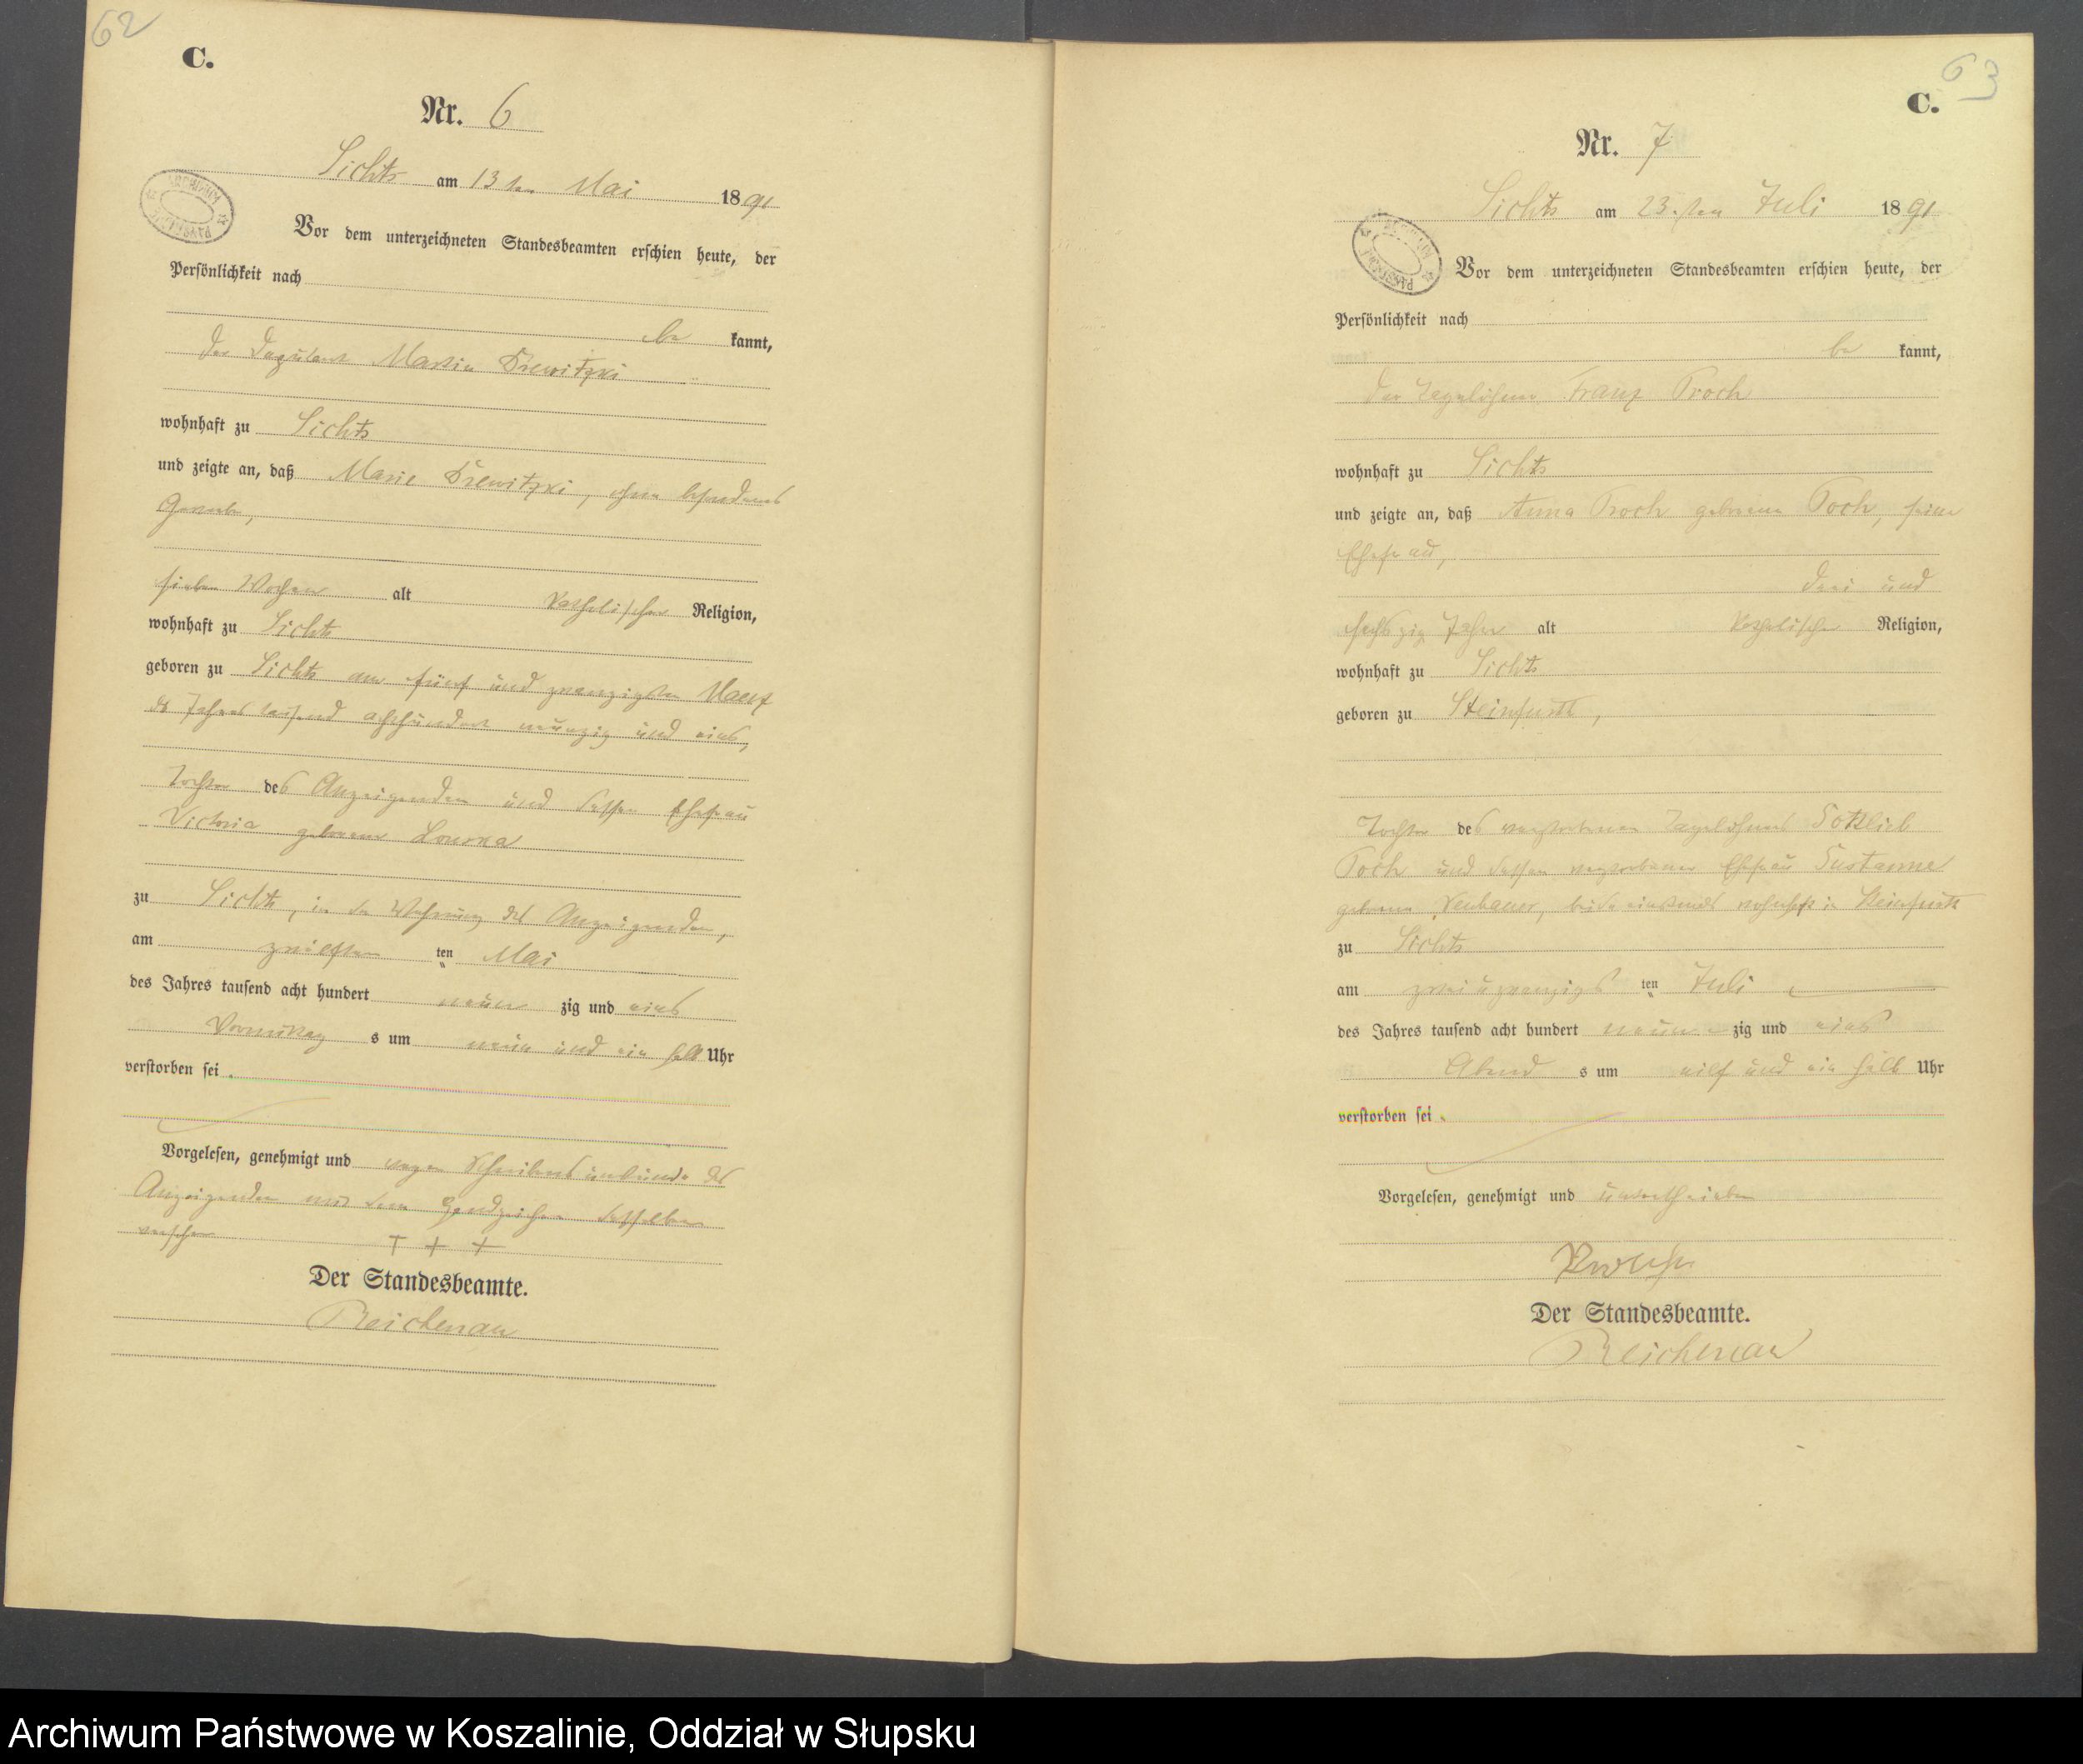 62
C.
Nr. 6
Lichts am 13ten Mai 1891
Vor dem unterzeichneten Standesbeamten erschien heute, der
Persönlichkeit nach
be kannt,
der Martin
wohnhaft zu Lichts
und zeigte an, daß Marie ohne besonderes
Gewerbe,
sieben Wochen alt katholischer Religion,
wohnhaft zu Lichts
geboren zu Lichts am fünf und zwanzigsten Maerz
des Jahres tausend achthundert neunzig und eins,
Tochter des Anzeigenden und dessen Ehefrau
Victoria geborene
zu Lichts, in der Wohnung des Anzeigenden,
am zwölften ten Mai
des Jahres tausend acht hundert neun zig und eins
Vormittag s um neun und ein halb Uhr
verstorben sei.
Vorgelesen, genehmigt und wegen Schreibensunkunde des
Anzeigenden mit dem Handzeichen desselben
versehen + + +
Der Standesbeamte.
Reichenau
63
C.
Nr. 7
Lichts am 23.sten Juli 1891
Vor dem unterzeichneten Standesbeamten erschien heute, der
Persönlichkeit nach
be kannt,
der Tagelöhner Franz Proch
wohnhaft zu Lichts
und zeigte an, daß Anna Proch geborene Poch, seine
Ehefrau,
drei und
sechszig Jahre alt katholischer Religion,
wohnhaft zu Lichts
geboren zu Steinfurth,
Tochter des verstorbenen Tagelöhners Gottlieb
Poch und dessen verstorbener Ehefrau Sustanne
geborene Neubauer, beide wohnhaft in Steinfurth
zu Lichts
am zwei u zwanzigs ten Juli
des Jahres tausend acht hundert neun zig und eins
Abend s um elf und ein halb Uhr
verstorben sei.
Vorgelesen, genehmigt und unterschrieben
Der Standesbeamte.
Reichenau
Archiwum Państwowe w Koszalinie, Oddział w Słupsku